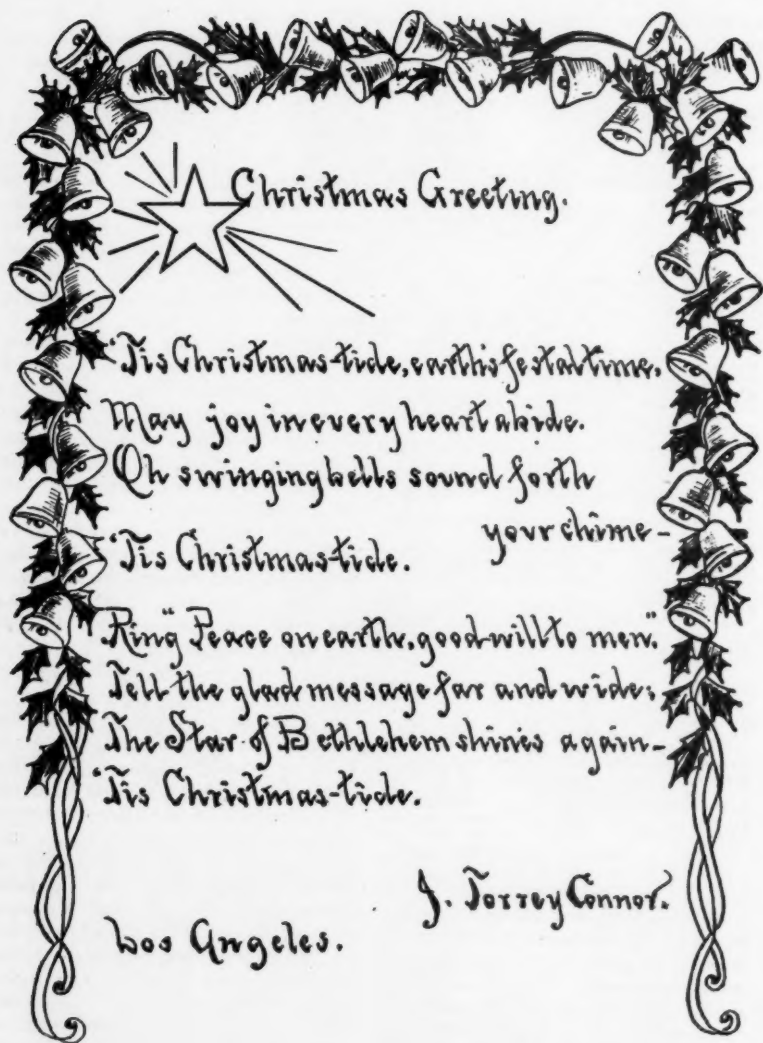 Christmas Greeting.
'Tis Christmas-tide, earth's festal time.
May joy in every heart abide.
Oh swinging bells sound forth
your chime-
'Tis Christmas-tide.
Ring "Peace on earth, good-will to men."
Tell the glad message far and wide;
The Star of Bethlehem shines again-
'Tis Christmas-tide.
J. Torrey Connor.
Los Angeles.